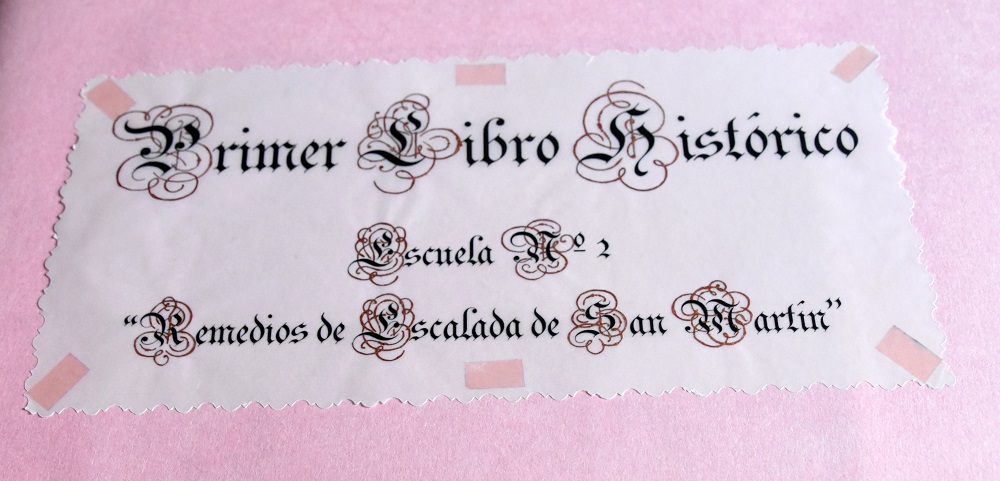 Primer Libro Histórico
Escuela Nº 2
“Remedios de Escalada de San Martín”